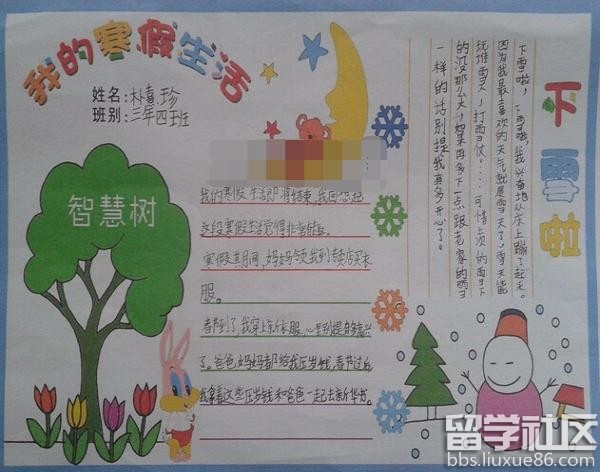 我的寒假生活
姓名:朴熹珍
班别:三年四班
智慧树
我的寒假生活即将结束,我回想起
这段寒假生活觉得非常
寒假其间,妈妈领我到专卖店买衣
服。
春节到了,我穿上新衣服,心里别提多高兴
了。爸爸妈妈都给我压岁钱,春节过后
我拿着这些压岁钱和爸爸一起去新华书。
下雪啦
下雪啦,下雪啦,我兴奋地从床上蹦了起来。
因为我最喜欢的天气就是雪天了,雪天能
玩堆雪人,打雪仗……可惜上次的雪下
的没那么大,如果再多下一点跟老家的雪
一样的话别提我有多开心了。
留学社区
bbs.liuxue86.com